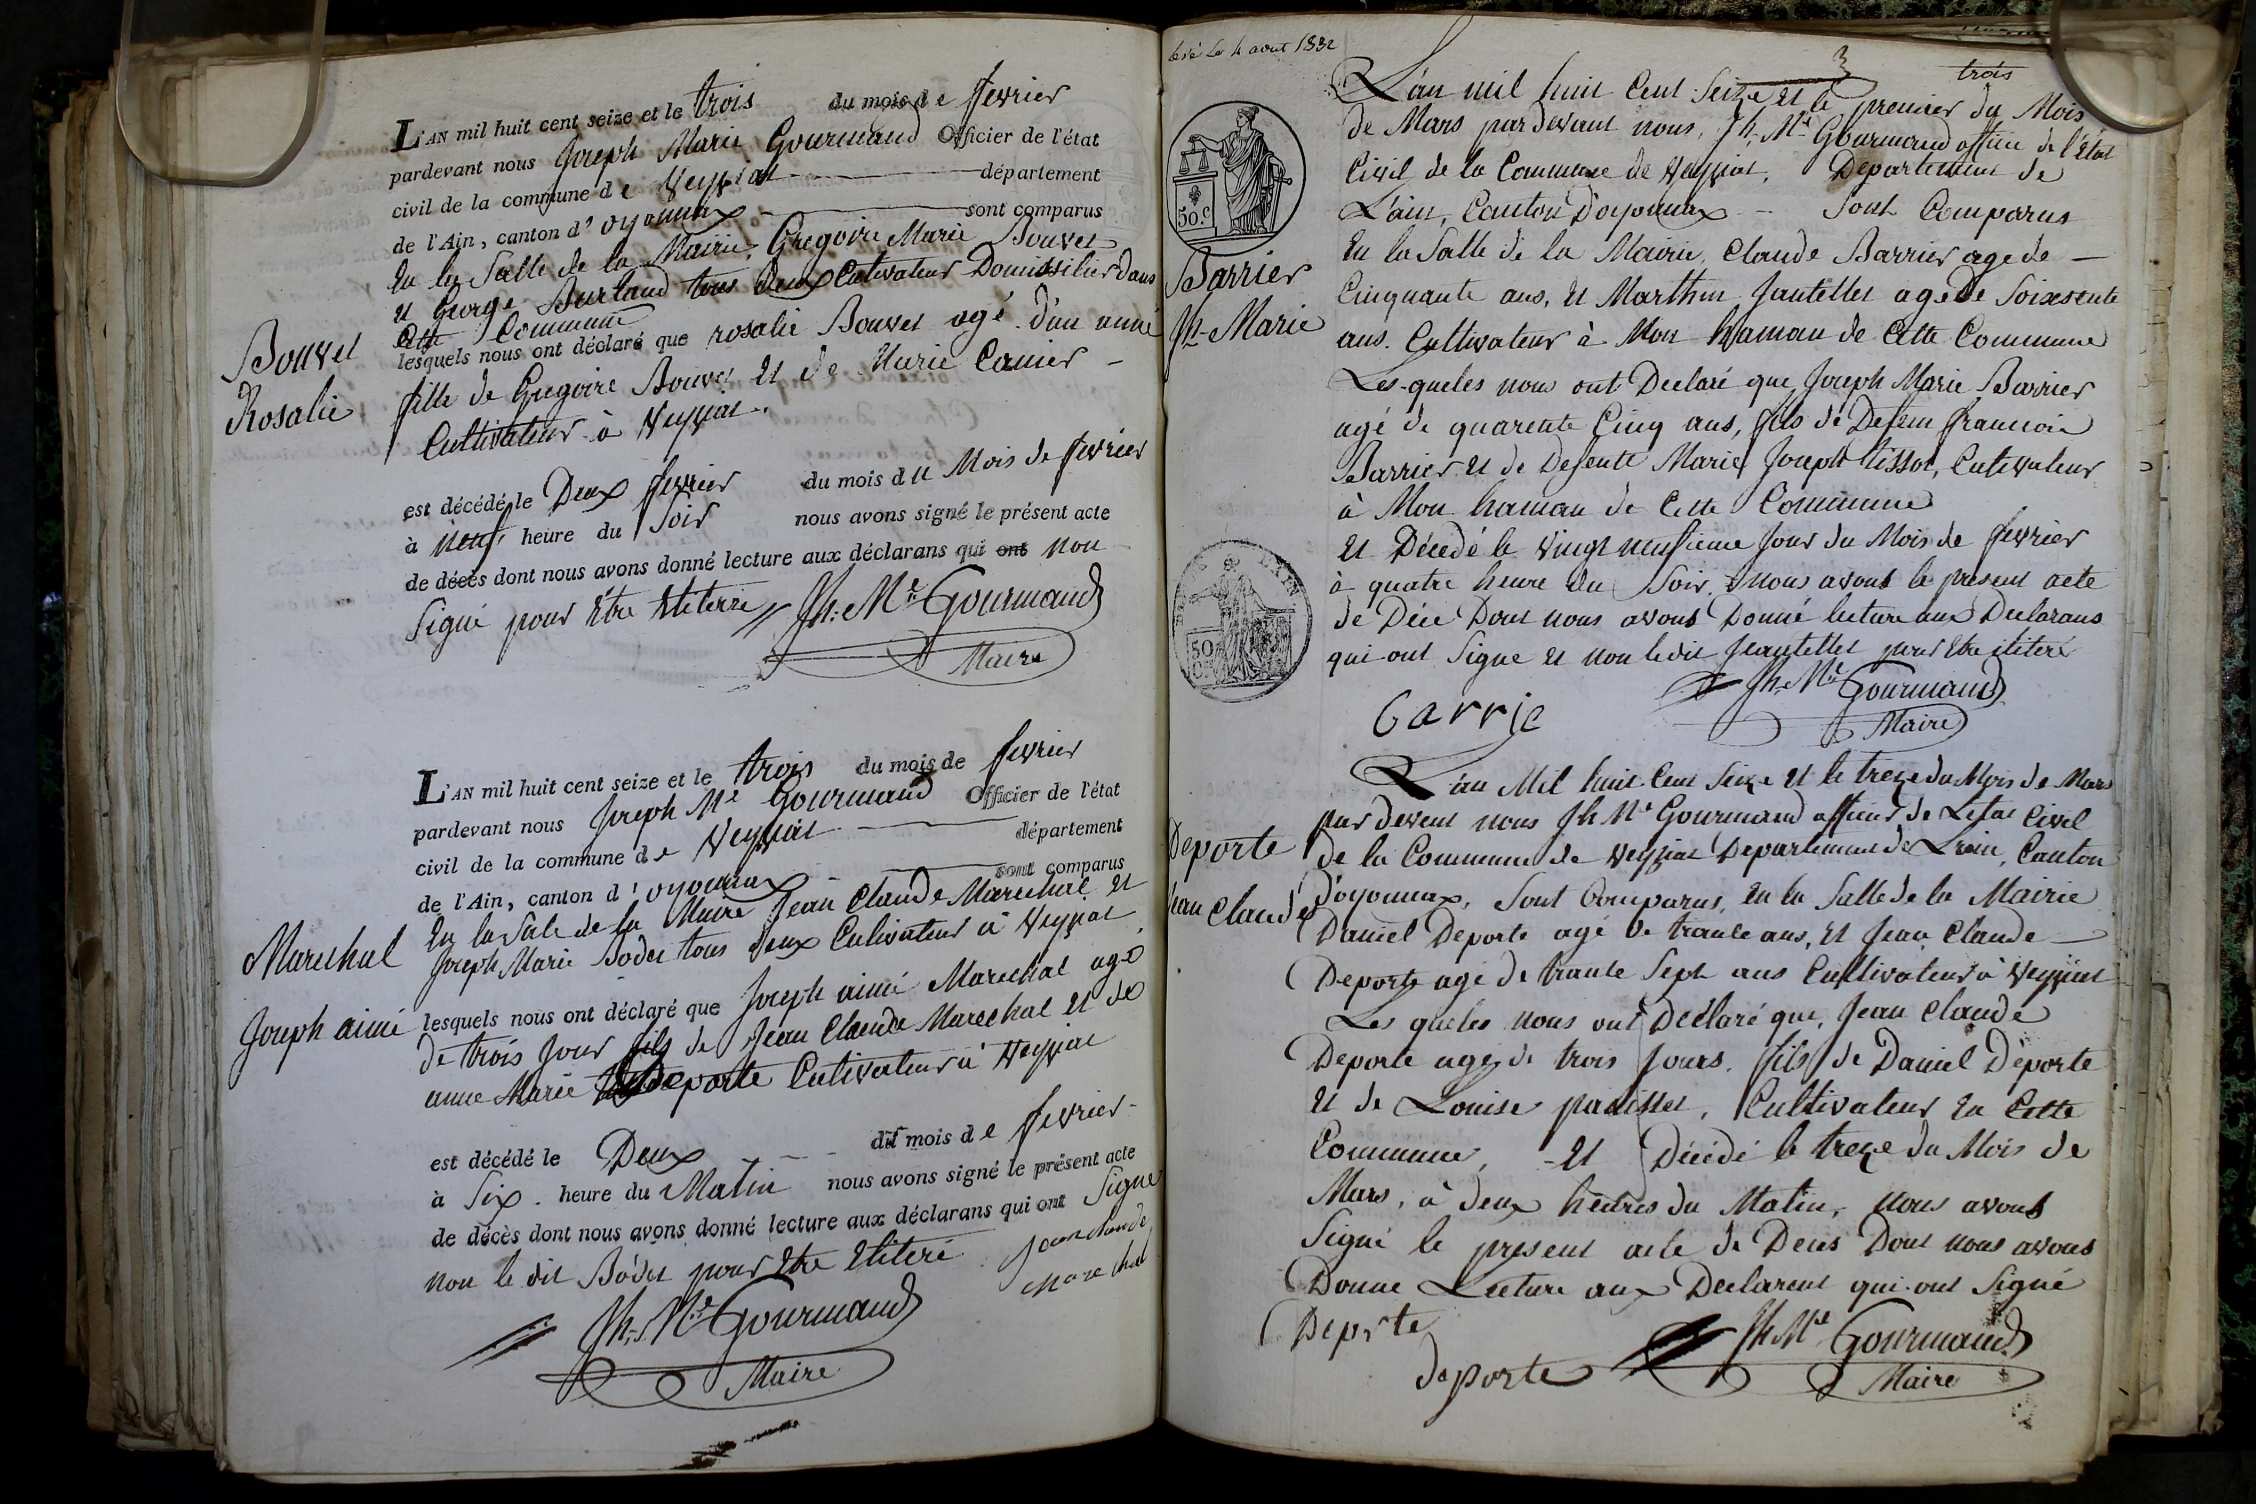 L'AN mil huit cent seize et le trois du mois de fevrier
pardevant nous Joseph Marie Gourmand Officier de l'état
civil de la commune de Veyziat département
de l'Ain, canton d'oyonnax sont comparus
En la Salle de la Mairie, Gregoire Marie Bouvet
et George Burland tous Deux Cutivateur Domissilier dans
Cette Commune
lesquels nous ont déclaré que rosalie Bouvet agé d'un année
Bouvet
Rosalie
fille de Gregoire Bouvet et de Marie Canier
Cultivateur à Veyziat.
est décédé le Deux fevrier du mois du Mois de fevrier
à neuf heure du Soir nous avons signé le présent acte
de décès dont nous avons donné lecture aux déclarans qui ont non
Signé pour être Eliterre Jh. Mie Gourmand
Maire
L'AN mil huit cent seize et le trois du mois de fevrier
pardevant nous Joseph Me Gourmand Officier de l'état
civil de la commune de Veyziat département
de l'Ain, canton d'oyonnax sont comparus
En la Sale de la Maire Jean Claude Marechal et
Joseph Marie Bodet tous deux Cultivateur à Veyziat,
Marechal
Joseph aimé
lesquels nous ont déclaré que Joseph aimé Marechal agé
de trois Jour fils de Jean Claude Marechal et de
anne Marie Deporte Cutivateur à Veyziat
est décédé le Deux dit mois de fevrier
à Six heure du Matin nous avons signé le présent acte
de décès dont nous avons donné lecture aux déclarans qui ont Signé
non le dit Bodet pour Etre Eliteré
Jean claude
Marechal
Jh. Mie Gourmand
Maire
le 4 aout 1832
3
trois
L'an mil huit Cent Seize et le premier du Mois
de Mars pardevant nous, Jh. Me Gourmand officie de l'État
Civil de la Commune de Veyziat, Departement de
L'ain, Canton D'oyonnax Sont Comparus
50.c
En la Salle de la Mairie, Claude Barrier age de
Cinquante ans, et Marthin Jantellet agé De Soixsente
ans. Cultivateur à Mon hamau de Cette Commune
Barrier
Jh- Marie
Les-queles nous ont Declaré que Joseph Marie Barrier
agé de quarente Cinq ans, fils de Defeun francoie
Barrier et de Defente Marie Joseph tissot, Cutivateur
à Mon hamau de Cette Commune
et Décedé le Vingt neufieme Jour du Mois de fevrier
à quatre heure du Soir. Nous avons le present acte
de Déce Dont nous avons Donné lecture aux Declarans
qui ont Signe et non le dit Jeantellet pour Etre iliteré
50
C.
Barrie
Jh. Me Gourmand
Maire
L'an Mil huit Cent Seize et le treze du Mois de Mars
par devent nous Jh Me Gourmand officier de Letat Civil
de la Commune de Veyziat Departement de L'ain, Canton
D'oyonnax, Sont Comparus, En la Salle de la Mairie
Deporte
Jean Claude
Daniel Deporte agé de trante ans, et Jean Claude
Deporte agé de trante Sept ans Cultivateur à Veyziat
Les queles nous ont Déclaré que, Jean Claude
Deporte agé de trois Jours. fils de Daniel Deporte
et de Louise panisset, Cultivateur En Cette
Commune, et Décédé le treze du Mois de
Mars, à deux heures du Matin, nous avons
Signé le present acte de Deces Dont nous avons
Donne Lecture aux Declarent qui ont Signé
Deporte
deporte
Jh Me Gourmand
Maire